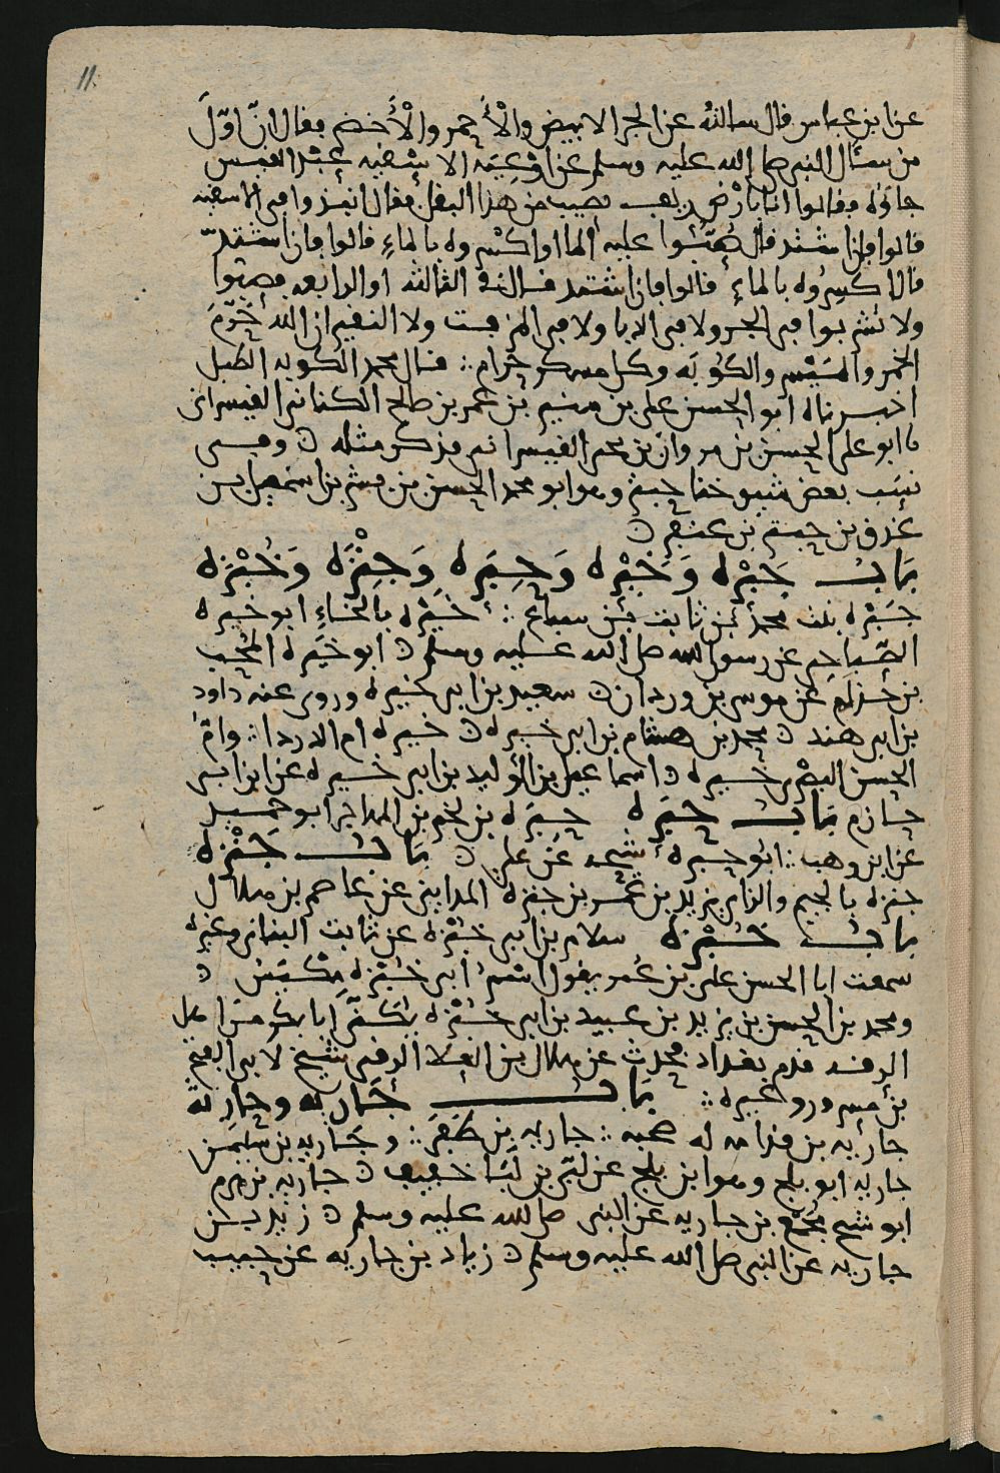 11
عن ابن عباس قال سالته عن الجر الابيض والأحمر والأخضر فقال انّ اوّل
من سأل النبي صلى الله عليه وسلم عن اوعِيَه الاسقيه عبْد القيس
جاؤه فقالوا انا بارْض ريف نصيب من هذا البقل فقال انبذوا في الاسقيه
قالوا فان اشتد قال صُبّوا عليه الما او اكسروه بالماءِ قالوا فان اشتدّ
قال اكسِروُه بالماءِ قالوا فان اشتد قال في الثالثه او الرابعه فصبّوا
ولا تشربوا في الجر ولا في الدبا ولا في المزفت ولا النقير ان الله حَرّمَ
الخمر والميسر والكوبَه وكل مسكر حرام قال محمد الكوبه الطبل
اخبرناه ابو الحسن علي بن منير بن عمر بن صلح الكناني القيسراني
نا ابو علي الحسن بن مروان بن يحيى القيسراني فذكر مثله وفي
نسَب بعض شيوخنا حبتر وهو ابو محمد الحسن بن بن اسمعيل بن
بن حبتر بن
بَاب جَبْره وَخَيْره وَحِبَرَه وَحِنْزَه وَخُبْزه
جَبْره بنت محمد بن ثابت بن سباع خيْره بالخاءِ ابو خيره
الصُّباحي عن رسول الله صلى الله عليه وسلم ابو خيْره المحب
بن حذلم عن موسى بن وردان سعيد بن ابي خيره وروى عنه داود
بن ابي هند محمد بن هشام بن ابي خيره خيره ام الدرداء وامّ
الحسن البصْري خيره اسماعيل بن الوليد بن ابي خيره عن ابن ابي
حازم بَاب حِبَرَه حِبَرَه بن لخم بن المهاجر ابو
عن ابن وهب ابو حبره شيحه عن علي بَاب جَمْزه
جمزه بالجيم والزاي يزيد بن عُمر بن جمزه المدايني عن عاصم بن هلال
بَاب خُبْزه سلام بن ابي خبْزه عن ثابت البناني وغيره
سمعت ابا الحسن علي بن عُمر يقول اسم ابي خبْزه مكيَس
ومحمد بن الحسن بن يزيد بن عبيد بن ابي خبْزه يكنى ابا بكر من اهل
الرقه قدم بغداد محدث عن هلال بن العلا الرقي شيخ لابي الفتح
بن مسرور وغيره بَاب جَاريه وحَارِثه
جاريه بن قدامه له صحبه جاريه بن ظَفَرَ وجَاريه بن سليمن
جاريه ابو بلج وهو ابن بلج عن لبّى بن لَبَا جاريه بن هرم
ابو شيخ مجمّع بن جاريه عن النبي صلى الله عليه وسلم زيد بن
جاريه عن النبي صلى الله عليه وسلم زياد بن جاريه عن حبيب